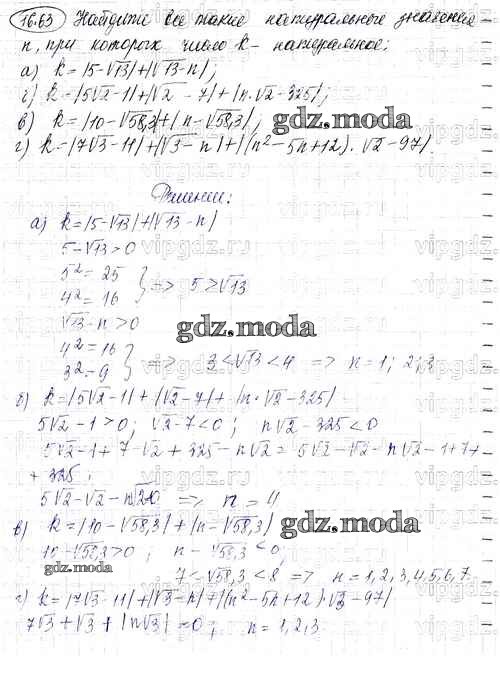 16.63 Найдите все такие натуральные значения
n, при которых число k - натуральное:
а) k = |5-√13|+|√13-n|;
г) k = |5√2-1|+|√2 - 7|+|n·√2-325|;
в) k = |10-√58,3|+|n-√58,3|;
г) k = |7√3-11|+|√3-n|+|(n²-5n+12)·√2-97|.
gdz.moda
Решение:
а) k = |5-√13|+|√13-n|
5-√13>0
5²=25
4²=16 } => 5>√13
√13-n>0
gdz.moda
4²=16
3²=9 } => 3<√13<4 => n=1; 2; 3
б) k = |5√2-1| + |√2-7| + |n·√2-325|
5√2-1>0; √2-7<0; n√2-325<0
5√2-1+7-√2+325-n√2 = 5√2-√2-n√2-1+7+
+325;
5√2-√2-n√2=0 => n=4
в) k = |10-√58,3|+|n-√58,3|
gdz.moda
10-√58,3>0; n-√58,3<0;
7<√58,3<8 => n=1,2,3,4,5,6,7.
г) k = |7√3-11|+|√3-n|+|(n²-5n+12)·√3-97|
7√3+√3+|n√3|=0; n=1,2,3
vipgdz.ru